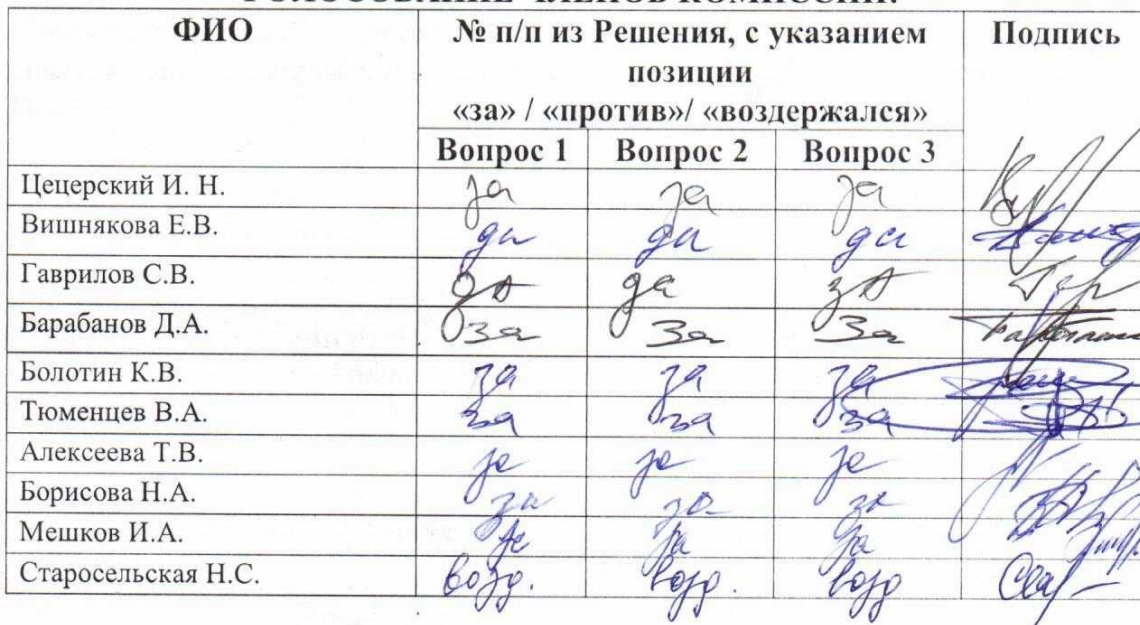 ГОЛОСОВАНИЕ ЧЛЕНОВ КОМИССИИ:
ФИО
№ п/п из Решения, с указанием
позиции
«за» / «против»/ «воздержался»
Подпись
Вопрос 1 Вопрос 2 Вопрос 3
Цецерский И. Н. за за за
Вишнякова Е.В. да да да
Гаврилов С.В. за за
Барабанов Д.А. за за за
Болотин К.В. за за за
Тюменцев В.А. за за за
Алексеева Т.В. за за за
Борисова Н.А. за за за
Мешков И.А. за за за
Старосельская Н.С. возд. возд. возд